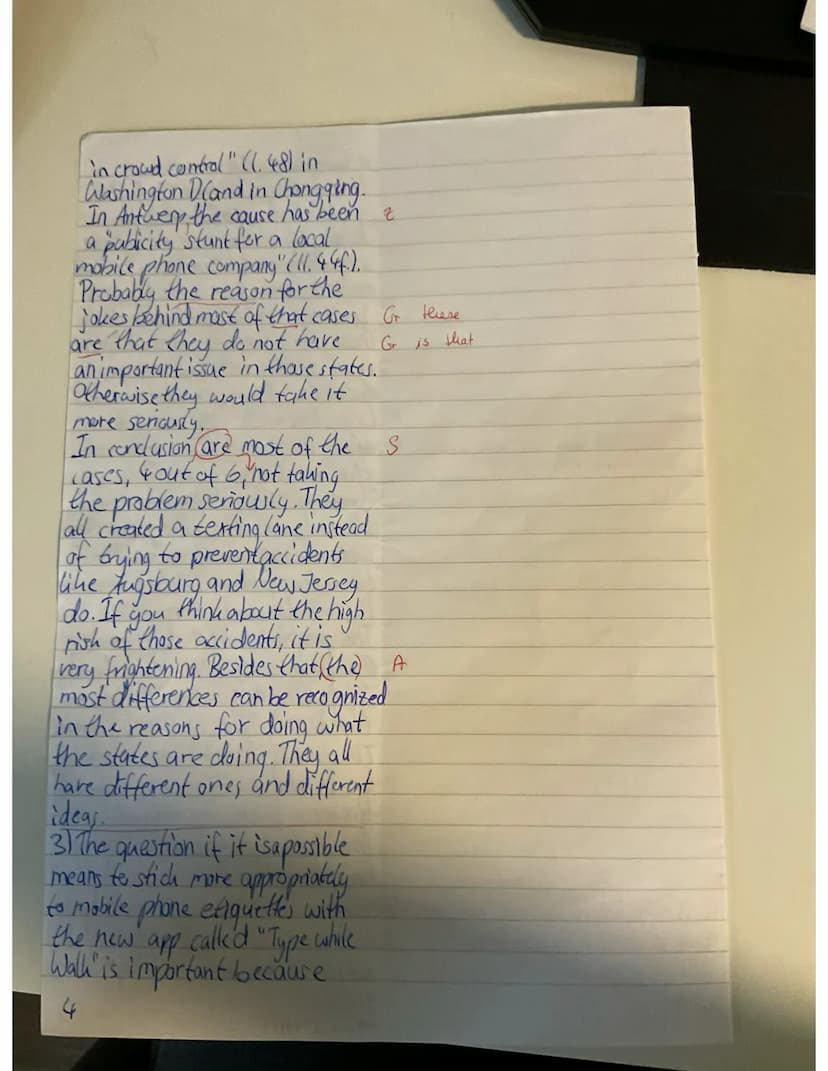 in crowd control" (l. 48) in
Washington DC and in Chongqing.
In Antwerp, the cause has been z
a "pubicity stunt for a local
mobile phone company" (ll. 44f.).
Probably the reason for the
jokes behind most of that cases Gr these
are that they do not have Gr is that
an important issue in those states.
Otherwise they would take it
more seriously.
In conclusion are most of the S
cases, 4 out of 6, not taking
the problem seriously. They
all created a texting lane instead
of trying to prevent accidents
like Augsburg and New Jersey
do. If you think about the high
risk of those accidents, it is
very frightening. Besides that (the) A
most differences can be recognized
in the reasons for doing what
the states are doing. They all
have different ones and different
ideas.
3) The question if it is a possible
means to stick more appropriately
to mobile phone etiquettes with
the new app called "Type while
Walk" is important because
4